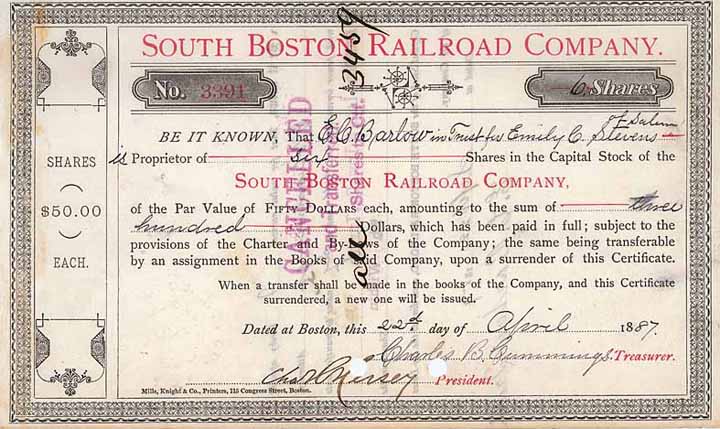 3459
SOUTH BOSTON RAILROAD COMPANY.
No. 3391
6 Shares
of Salem
BE IT KNOWN, That E. C. Barlow in Trust for Emily C. Stevens
is Proprietor of six Shares in the Capital Stock of the
SOUTH BOSTON RAILROAD COMPANY,
of the Par Value of FIFTY DOLLARS each, amounting to the sum of three
hundred Dollars, which has been paid in full; subject to the
provisions of the Charter and By-Laws of the Company; the same being transferable
by an assignment in the Books of said Company, upon a surrender of this Certificate.
When a transfer shall be made in the books of the Company, and this Certificate
surrendered, a new one will be issued.
Dated at Boston, this 22d day of April 1887.
Charles B. Cummings. Treasurer.
President.
Mills, Knight & Co., Printers, 115 Congress Street, Boston.
SHARES
$50.00
EACH.
CANCELLED
and transferred
Shares to Ct.
all